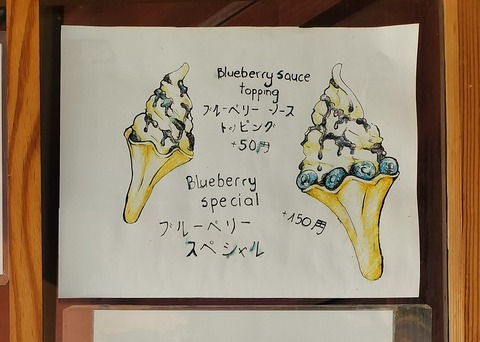 Blueberry sauce
topping
ブルーベリー ソース
トッピング
+50円
Blueberry
special
ブルーベリー
スペシャル
+150円